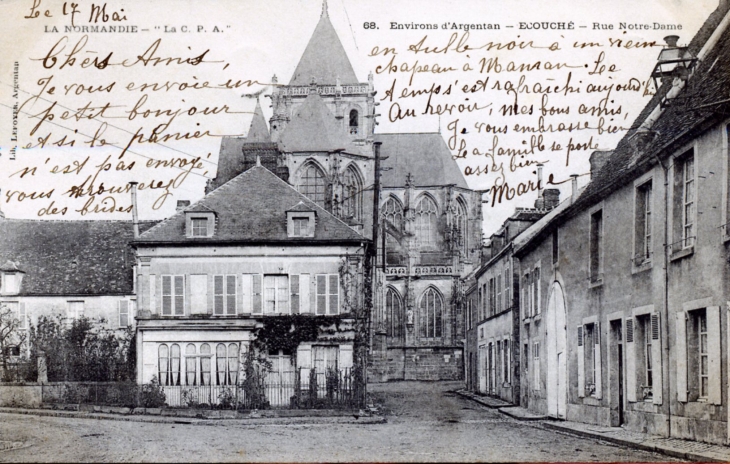 Le 17 Mai
LA NORMANDIE - "La C. P. A."
68. Environs d'Argentan - ECOUCHÉ - Rue Notre-Dame
Chers Amis,
Je vous envoie un
petit bonjour
et si le panier
n'est pas envoyé,
vous trouverez
des brides
en tulle noir à un vieux
chapeau à Maman. Le
temps s'est rafraîchi aujourd'
Au revoir, mes bons amis,
Je vous embrasse bien
La famille se porte
assez bien
Marie
Argentan